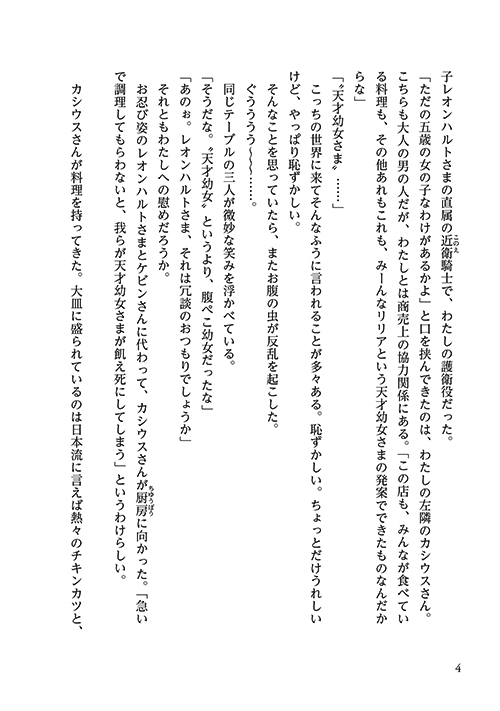 子レオンハルトさまの直属の近衛騎士で、わたしの護衛役だった。
「ただの五歳の女の子なわけがあるかよ」と口を挟んできたのは、わたしの左隣のカシウスさん。
こちらも大人の男の人だが、わたしとは商売上の協力関係にある。「この店も、みんなが食べてい
る料理も、その他あれもこれも、みーんなリリアという天才幼女さまの発案でできたものなんだか
らな」
「〝天才幼女さま〟……」
こっちの世界に来てそんなふうに言われることが多々ある。恥ずかしい。ちょっとだけうれしい
けど、やっぱり恥ずかしい。
そんなことを思っていたら、またお腹の虫が反乱を起こした。
ぐうううう〜〜〜……。
同じテーブルの三人が微妙な笑みを浮かべている。
「そうだな。〝天才幼女〟というより、腹ぺこ幼女だったな」
「あのぉ。レオンハルトさま、それは冗談のおつもりでしょうか」
それともわたしへの慰めだろうか。
お忍び姿のレオンハルトさまとケビンさんに代わって、カシウスさんが厨房に向かった。「急い
で調理してもらわないと、我らが天才幼女さまが飢え死にしてしまう」というわけらしい。
カシウスさんが料理を持ってきた。大皿に盛られているのは日本流に言えば熱々のチキンカツと、
このえ
ちゅうぼう
4